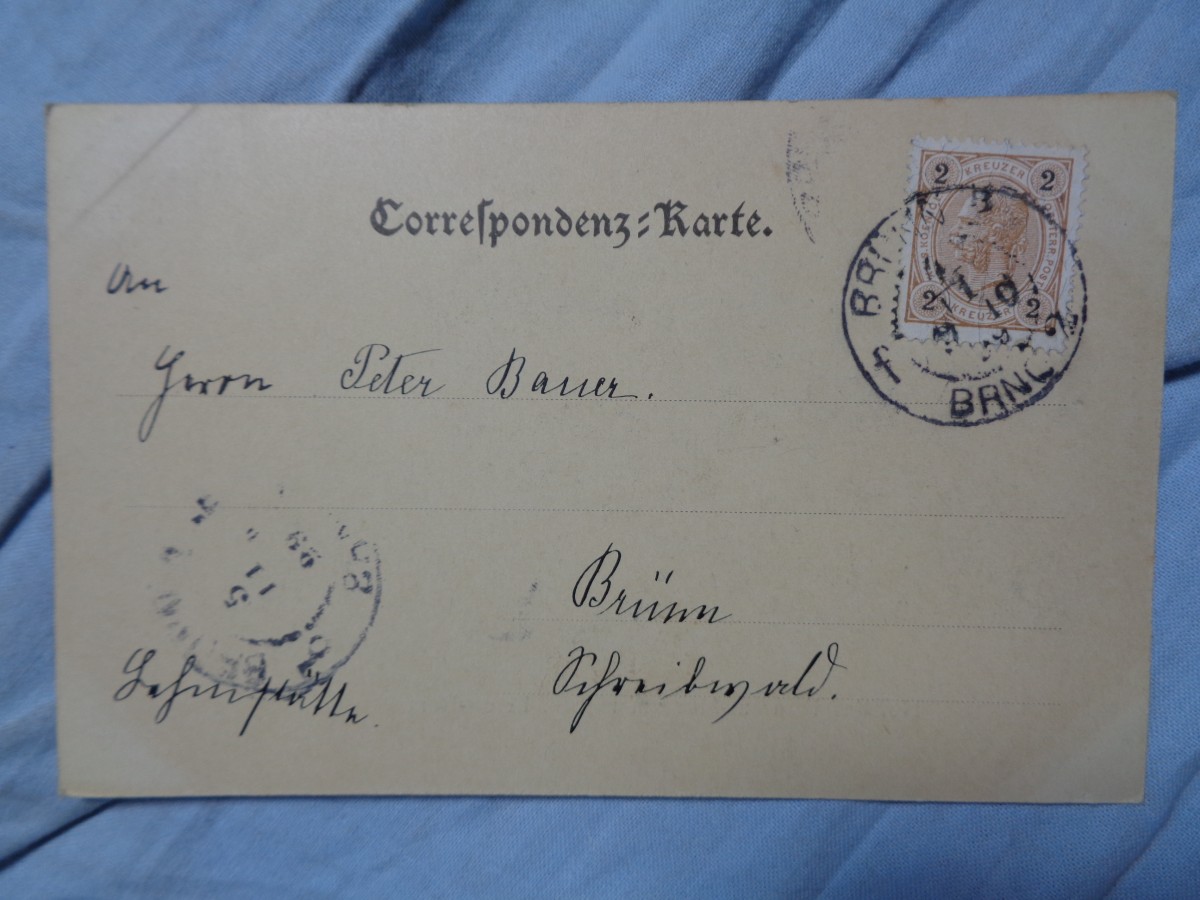 Correspondenz-Karte.
2 KREUZER 2
2 KREUZER 2
BRÜNN
BRNO
An
Herrn Peter Bauer.
Brünn
Schreibwald.
Lehmstätte.